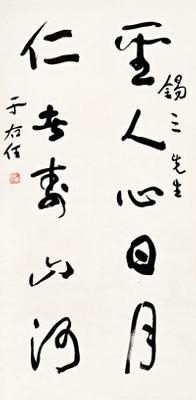 聖人心日月
錫三先生
仁者壽山河
于右任